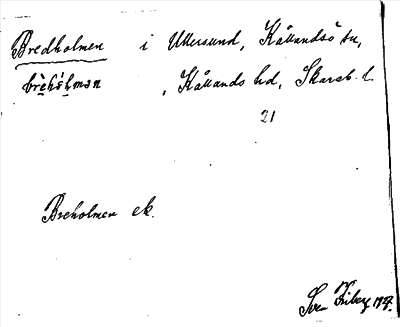 Bredholmen i Ullersund, Kållandsö sn,
brèhól̥man , Kållands hd, Skarab. l.
21
Breholmen ek.
Sven Friberg